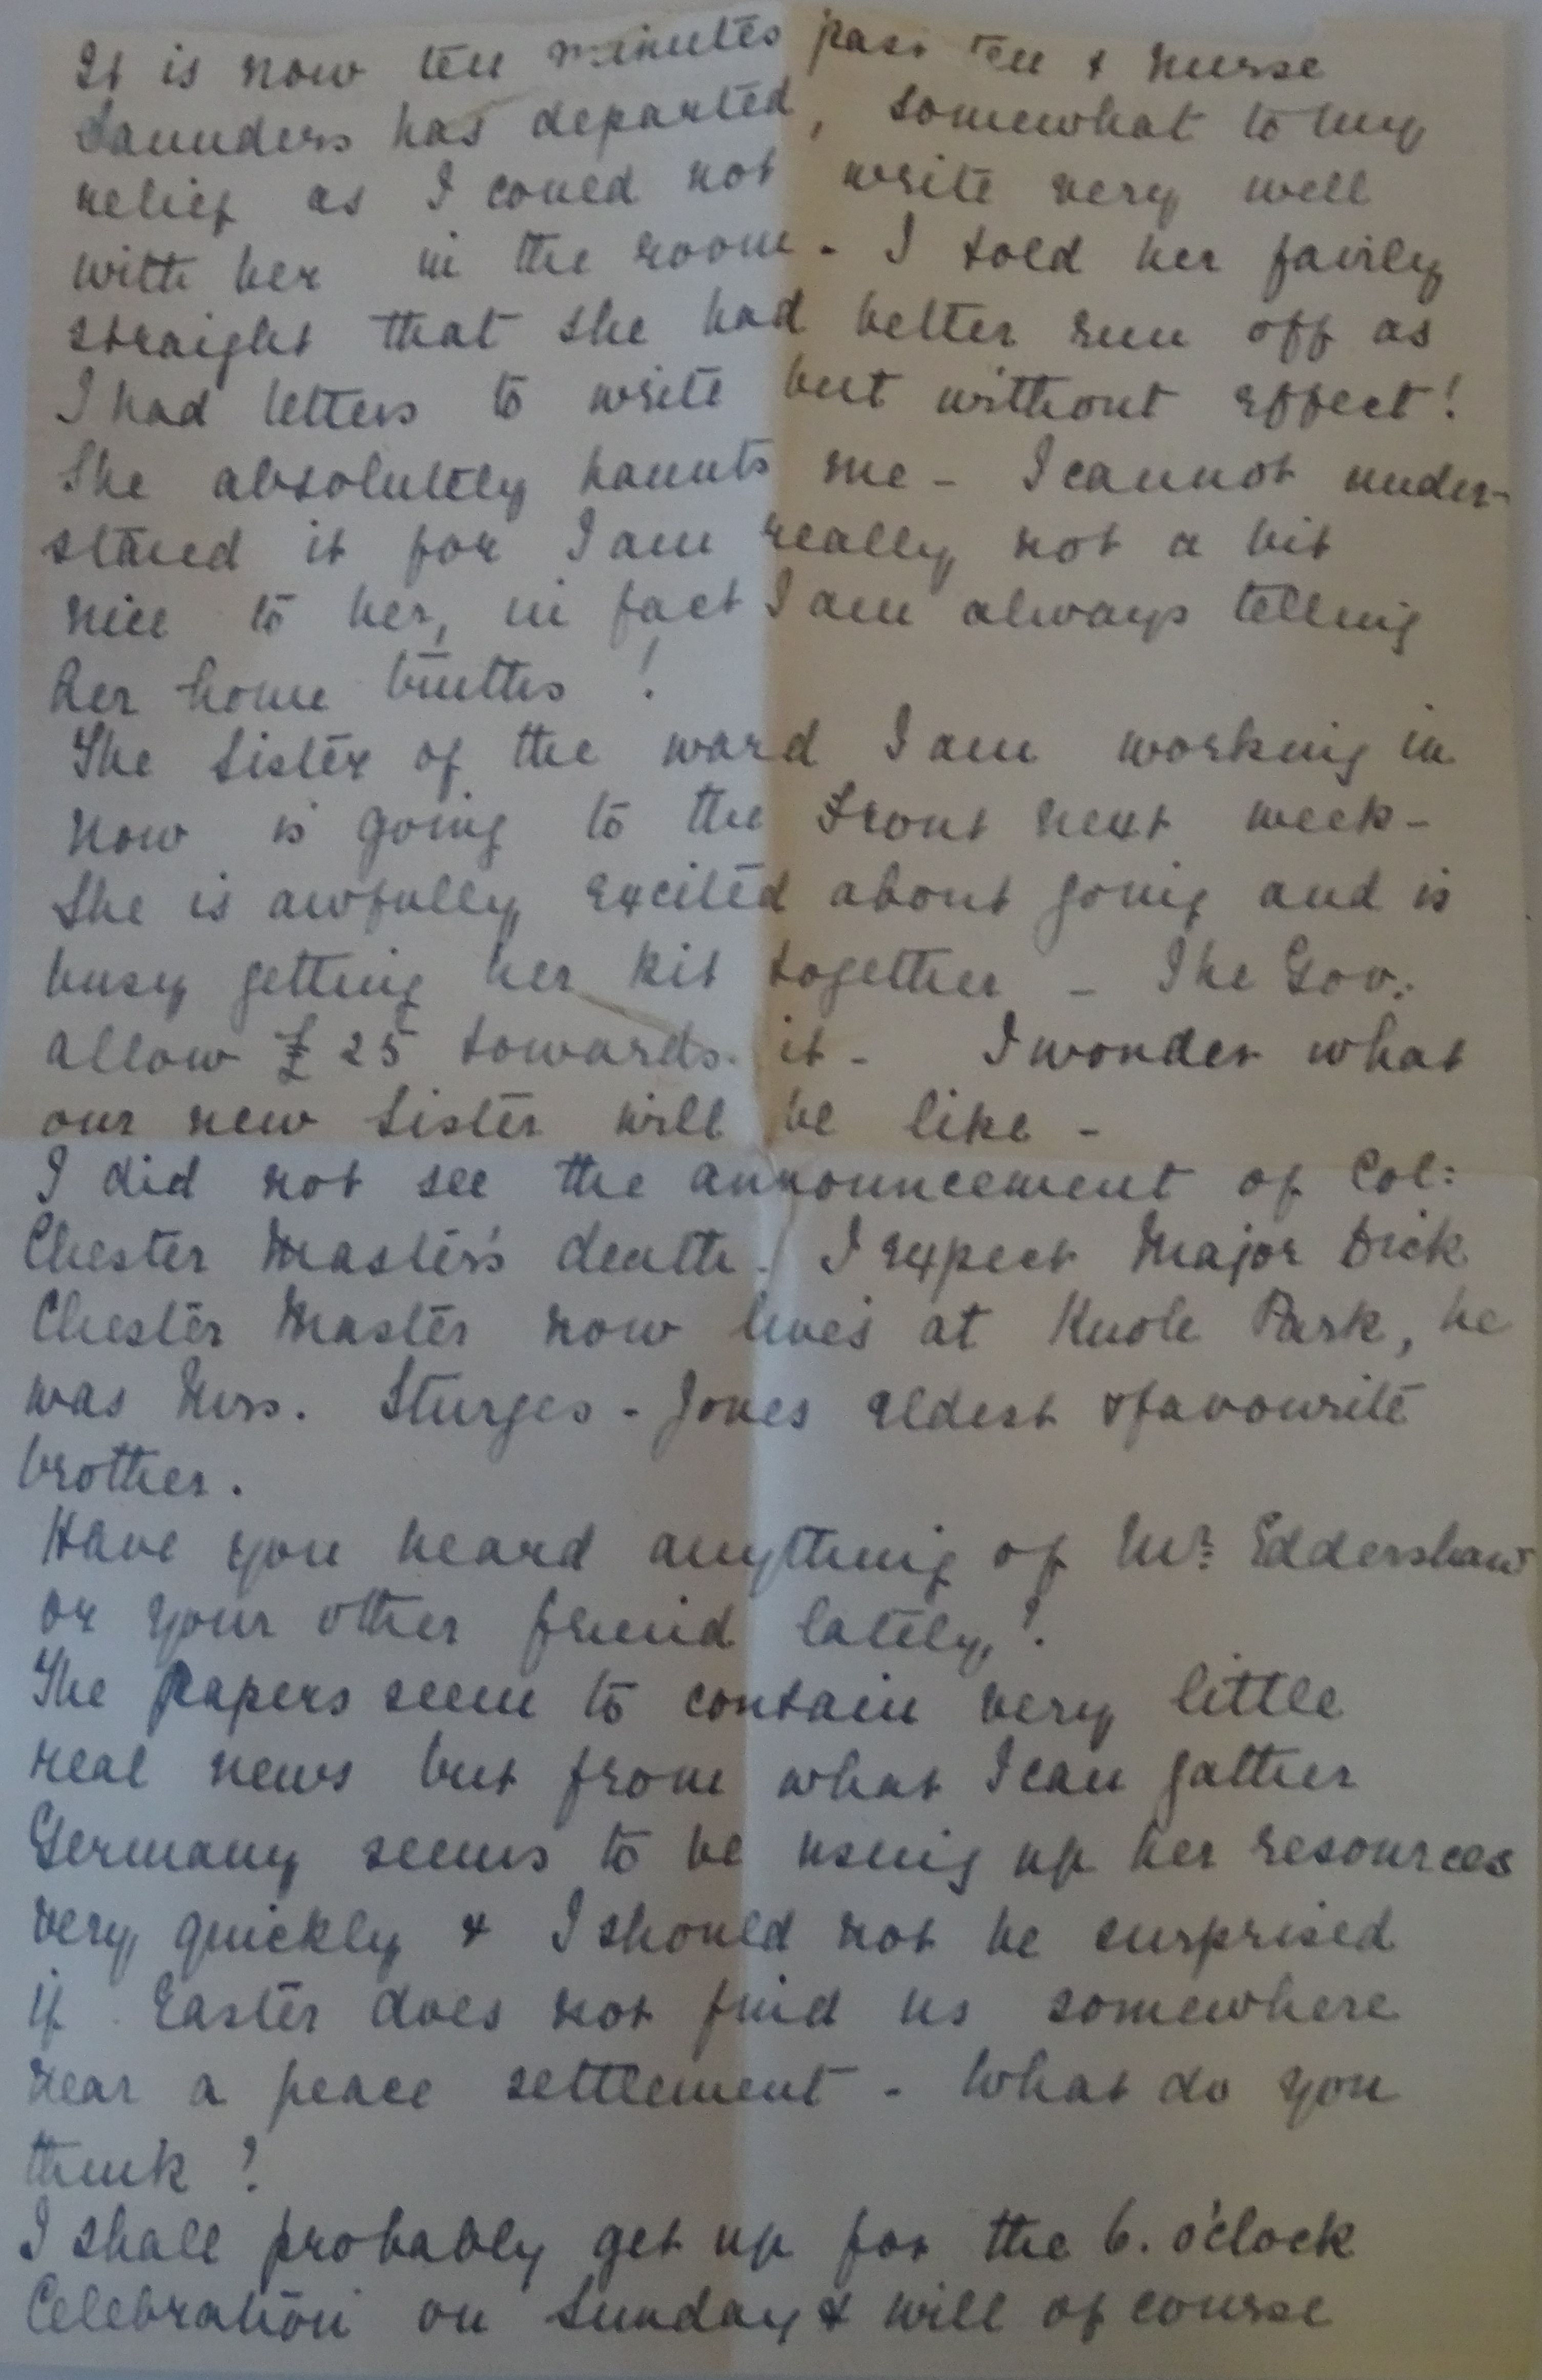 It is now ten minutes past ten & Nurse
Saunders has departed, somewhat to my
relief as I could not write very well
with her in the room - I told her fairly
straight that she had better run off as
I had letters to write but without effect!
She absolutely haunts me - I cannot under-
stand it for I am really not a bit
nice to her, in fact I am always telling
her home truths !
The Sister of the ward I am working in
now is going to the Front next week -
She is awfully excited about going and is
busy getting her kit together - The Gov:
allow £25 towards it - I wonder what
our new Sister will be like -
I did not see the announcement of Col:
Chester Master's death. I expect Major Dick
Chester Master now lives at Knole Park, he
was Mrs. Sturges-Jones eldest & favourite
brother.
Have you heard anything of Mr: Eddershaw
or your other friend lately?
The papers seem to contain very little
real news but from what I can gather
Germany seems to be using up her resources
very quickly & I should not be surprised
if Easter does not find us somewhere
near a peace settlement - What do you
think ?
I shall probably get up for the 6. o'clock
Celebration on Sunday & will of course